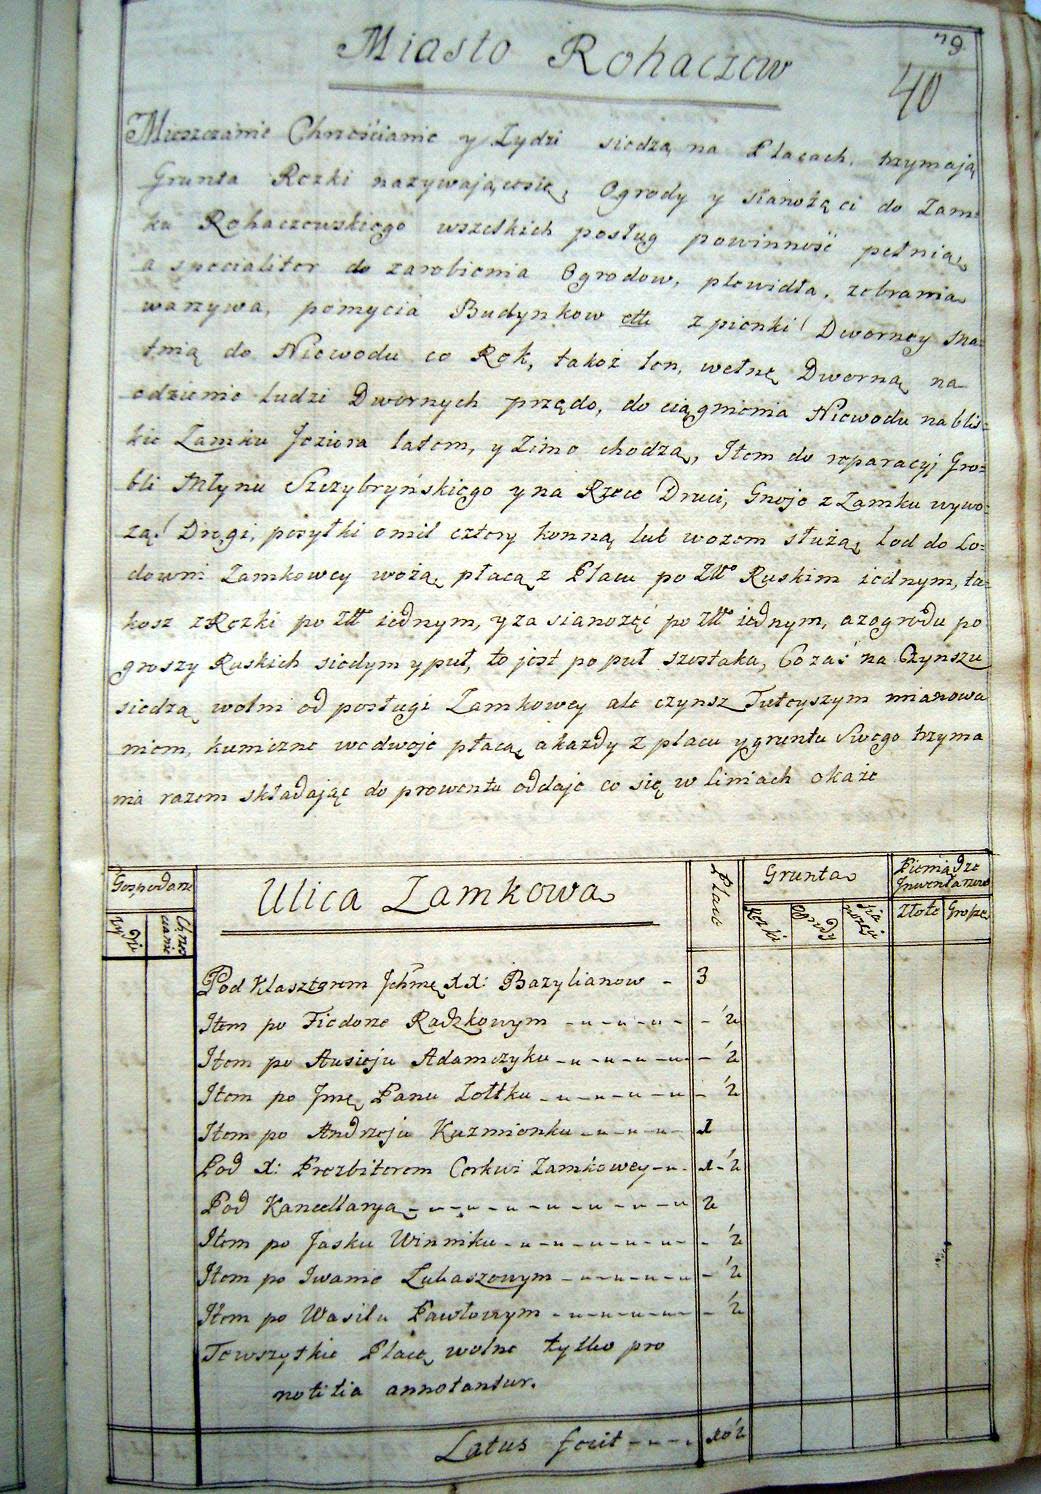 Miasto Rohaczew
40
Mieszczanie Chrześcianie y Zydzi siedzą na Placach, trzymają
Grunta Rezki nazywaiącesię, Ogrody y sianożęci do Zam-
ku Rohaczewskiego wszelkich posług powinność pełnią,
a specialiter do zarobienia Ogrodow, plewidła, zebrania
warzywa, pomycia Budynkow etc z pienki Dworney Ma-
tnią do Niewodu co Rok, takoż len, wełnę Dworną na
odzienie ludzi Dwornych przędo, do ciągnienia Niewodu na blis-
kie Zamku Jeziora latem, y Zimo chodzą, Item do reparacyj Gro-
bli Młynu Szczybryńskiego y na Rzece Druci, Gnoje z Zamku wywo-
zą! Drogi, posyłki o mil cztery konną lub wozem służą, lod do Lo-
downi Zamkowey wożą, płacą z Placu po Złł Ruskim iednym, ta-
kosz z Rezki po Złł iednym, y za sianożęć po Złł iednym, a z ogrodu po
groszy Ruskich siedym y puł, to jest po puł szostaka, Co zaś na Czynszu
siedzą wolni od posługi Zamkowey ale czynsz Tuteyszym mianowa
niem, kuniczne wedwoje płacą, a kazdy z placu y gruntu Swego trzyma
nia razem składając do prowentu oddaje co się w liniach okaże
Gospodarze
Zydzi
Chrzescianie
Ulica Zamkowa
Place
Grunta
Rezki
Ogrody
sianozęci
Pieniądze Inwentarzowe
Złote
Grosze
Pod Klasztorem Jchmę XX: Bazylianow - 3
Item po Fiedorze Radzkowym - ½
Item po Ausieju Adamczyku - ½
Item po Jmę Panu Zołtku - ½
Item po Andrzeju Kuzmienku - 1
Pod X: Prezbiterem Cerkwi Zamkowey - 1 ½
Pod Kancellaryą - 2
Item po Jasku Winniku - ½
Item po Iwanie Lubaszowym - ½
Item po Wasilu Pawłowym - ½
Te wszytkie Place wolne tylko pro
notitia annotantur.
Latus facit - 10½